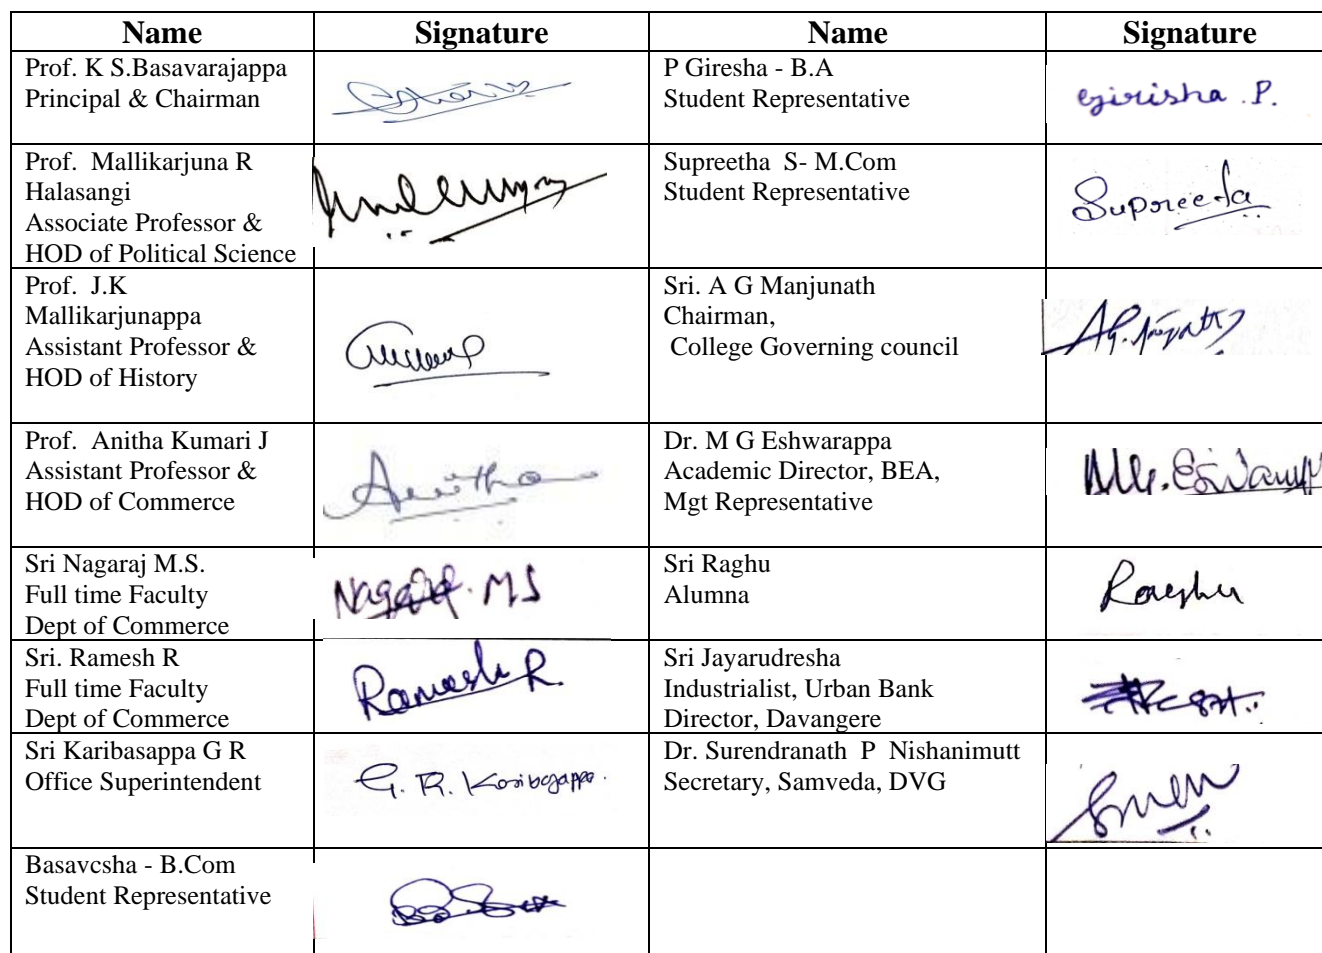 Name Signature Name Signature
Prof. K S.Basavarajappa
Principal & Chairman
P Giresha - B.A
Student Representative
girisha .P.
Prof. Mallikarjuna R
Halasangi
Associate Professor &
HOD of Political Science
Supreetha S- M.Com
Student Representative
Supreeta
Prof. J.K
Mallikarjunappa
Assistant Professor &
HOD of History
Sri. A G Manjunath
Chairman,
College Governing council
Prof. Anitha Kumari J
Assistant Professor &
HOD of Commerce
Anitha
Dr. M G Eshwarappa
Academic Director, BEA,
Mgt Representative
Sri Nagaraj M.S.
Full time Faculty
Dept of Commerce
Nagaraj. M S
Sri Raghu
Alumna
Raghu
Sri. Ramesh R
Full time Faculty
Dept of Commerce
Ramesh R.
Sri Jayarudresha
Industrialist, Urban Bank
Director, Davangere
Sri Karibasappa G R
Office Superintendent
G. R. Karibasappa.
Dr. Surendranath P Nishanimutt
Secretary, Samveda, DVG
Basavcsha - B.Com
Student Representative